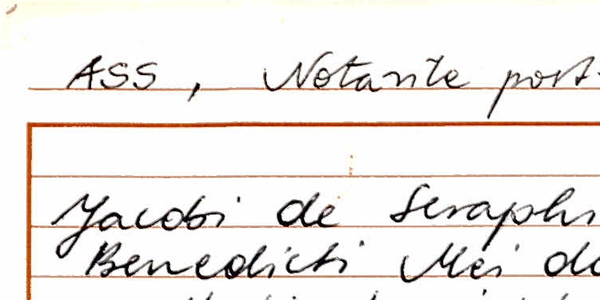 ASS, Notarile post-
Jacobi de Seraphi
Benedicti Mei de